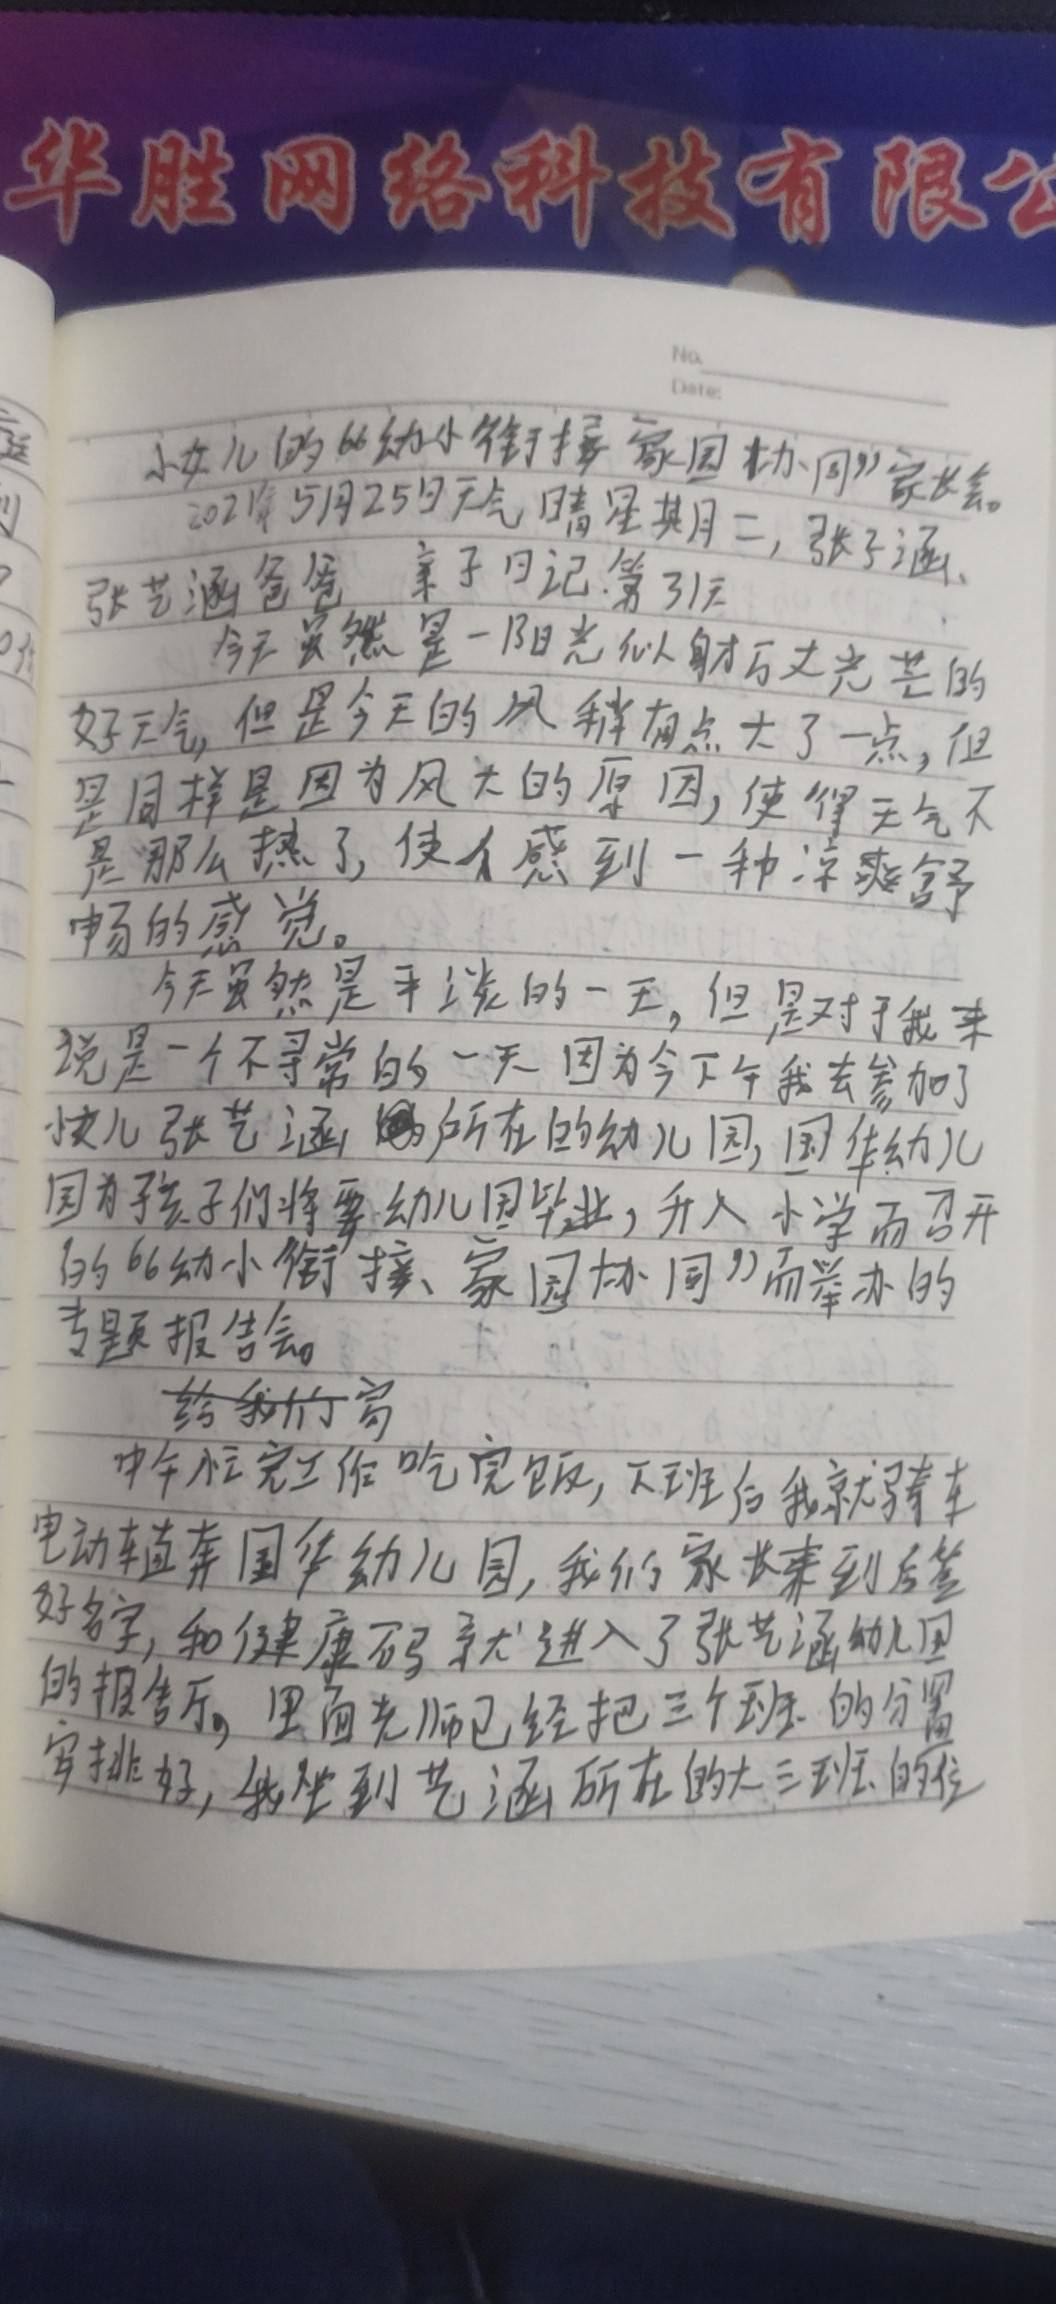 华胜网络科技有限公
No.
Date:
小女儿的“幼小衔接家园协同”家长会。
2021年5月25日天气晴星期二，张子涵、
张艺涵爸爸 亲子日记.第31天
今天虽然是一阳光似射万丈光芒的
好天气，但是今天的风稍有点大了一点，但
是同样是因为风大的原因，使得天气不
是那么热了，使人感到一种凉爽舒
畅的感觉。
今天虽然是平淡的一天，但是对于我来
说是一个不寻常的一天因为今下午我去参加了
小女儿张艺涵所在的幼儿园，国华幼儿
园为孩子们将要幼儿园毕业，升入小学而召开
的“幼小衔接、家园协同”而举办的
专题报告会。
给我们
中午忙完工作吃完饭，下班后我就骑车
电动车直奔国华幼儿园，我们家长来到后签
好名字，和健康码就进入了张艺涵幼儿园
的报告厅，里面老师已经把三个班的分
安排好，我坐到艺涵所在的大三班的位